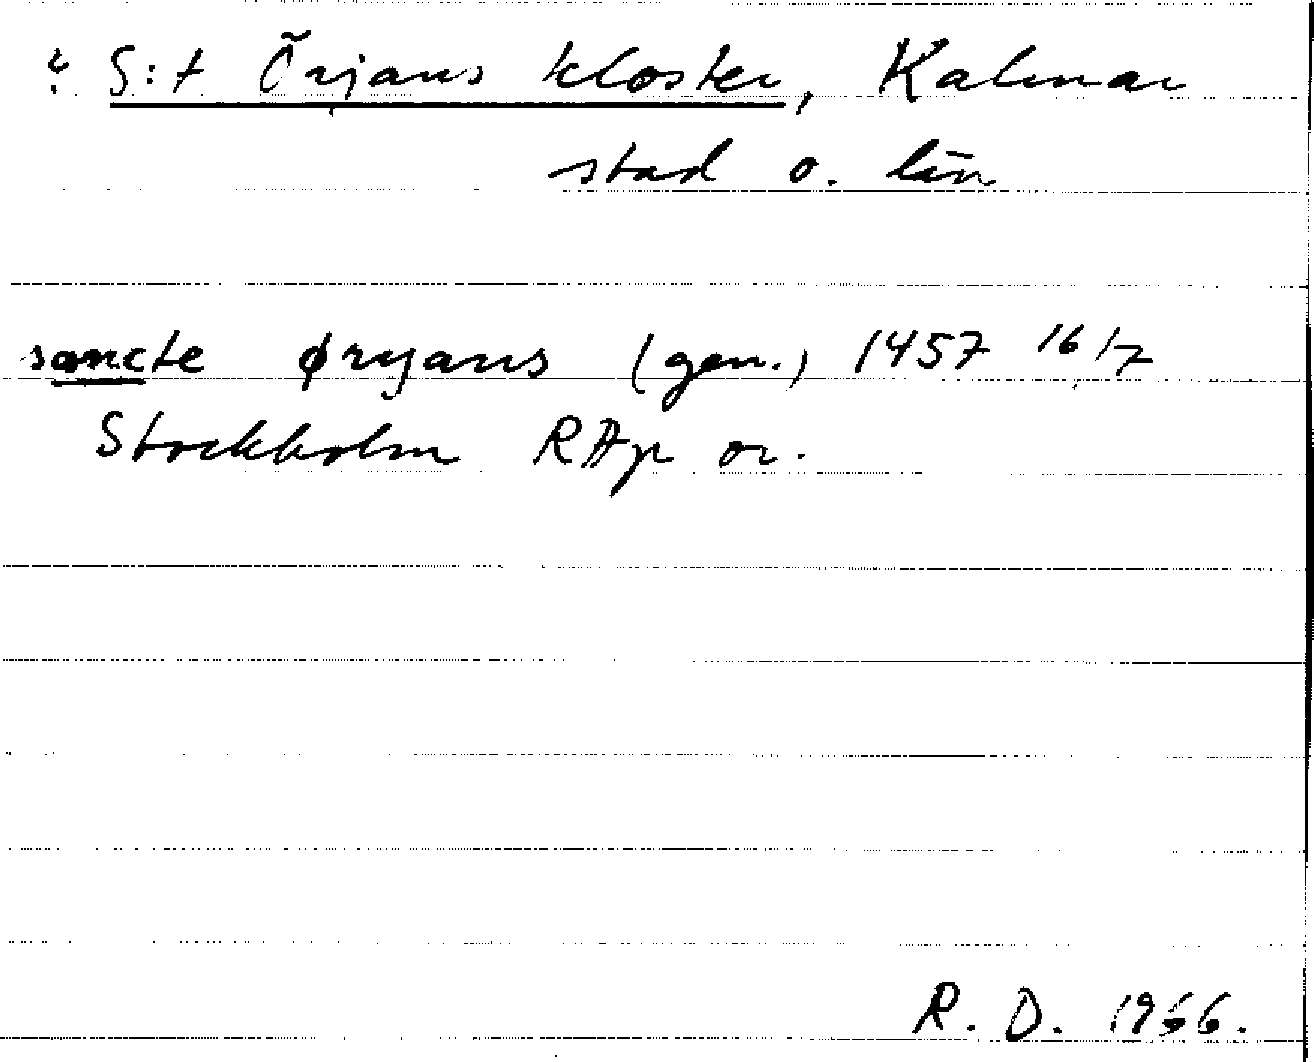 ? S:t Örjans kloster, Kalmar
stad o. län
sancte øryans (gen.) 1457 16/7
Stockholm RAp or.
R. D. 1966.